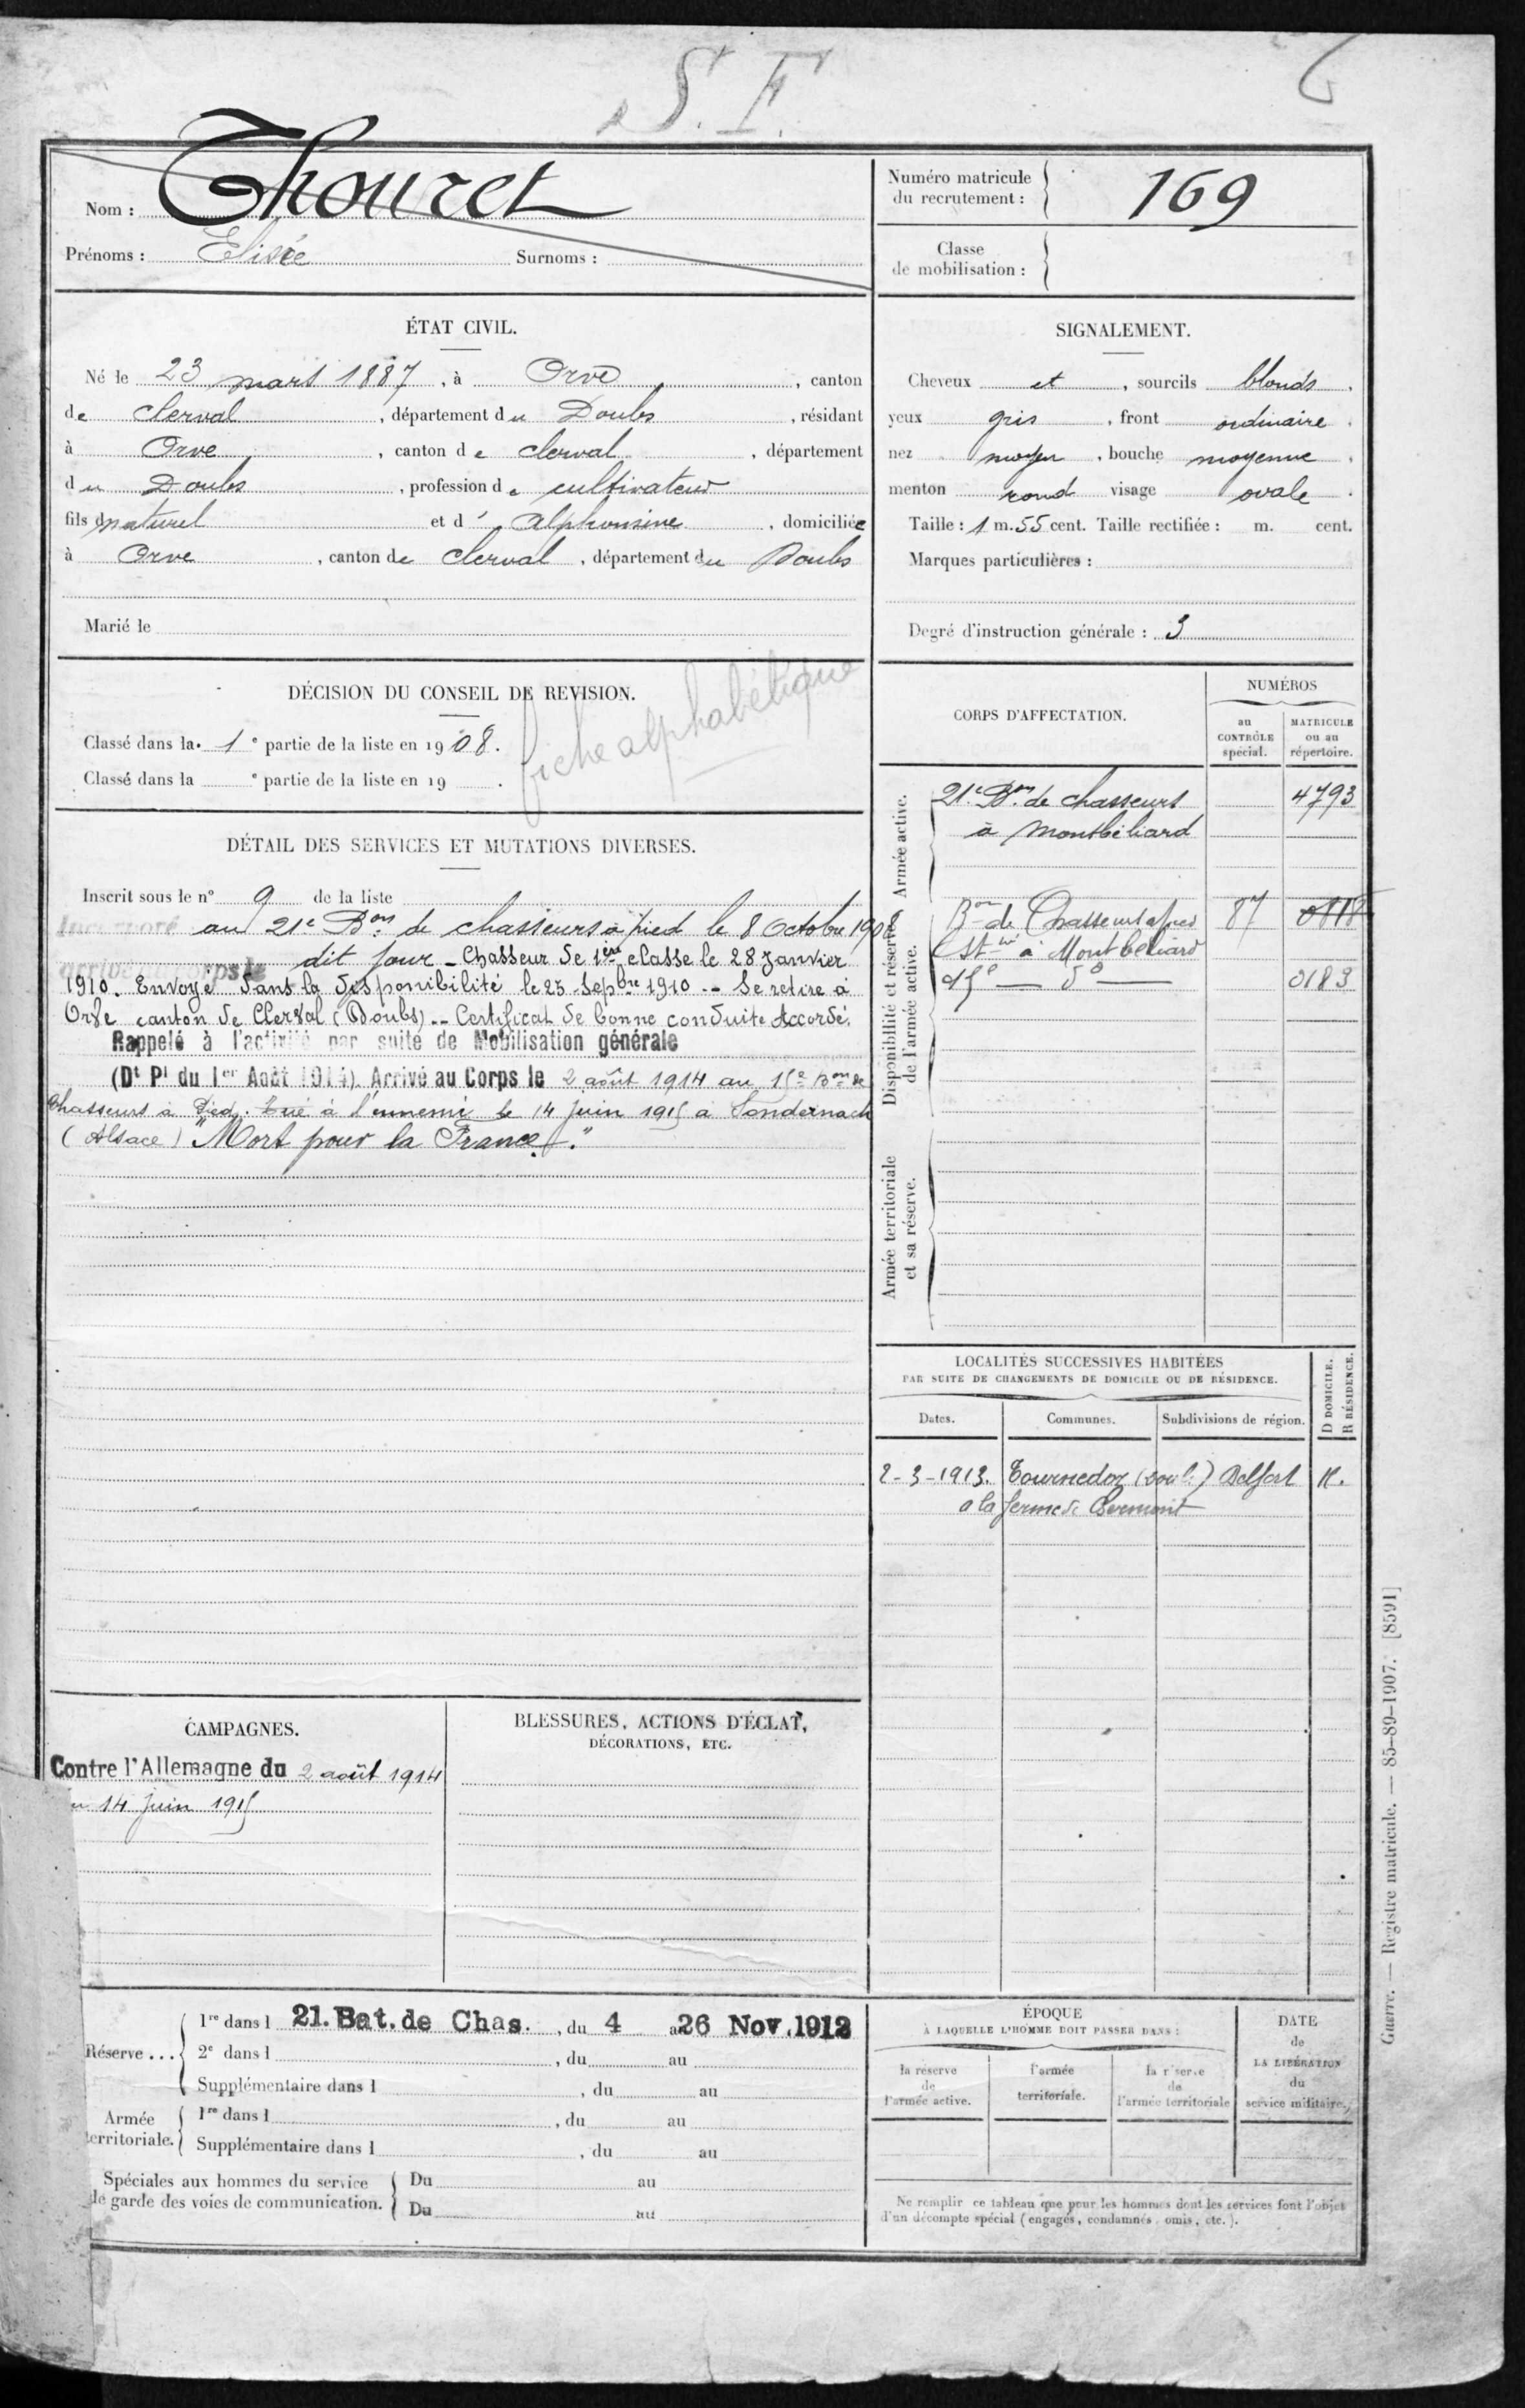 S. F.
Nom : Thouret
Prénoms : Elisée Surnoms :
Numéro matricule du recrutement : 169
Classe de mobilisation :
ÉTAT CIVIL.
Né le 23 mars 1887, à Orve, canton
de Clerval, département du Doubs, résidant
à Orve, canton de Clerval, département
du Doubs, profession de cultivateur
fils naturel et d' Alphonsine, domiciliée
à Orve, canton de Clerval, département du Doubs
Marié le
SIGNALEMENT.
Cheveux et, sourcils blonds.
yeux gris, front ordinaire.
nez moyen, bouche moyenne,
menton rond visage ovale.
Taille : 1 m. 55 cent. Taille rectifiée : m. cent.
Marques particulières :
Degré d'instruction générale : 3
DÉCISION DU CONSEIL DE REVISION.
Classé dans la 1e partie de la liste en 1908.
Classé dans la e partie de la liste en 19 .
fiche alphabétique
DÉTAIL DES SERVICES ET MUTATIONS DIVERSES.
Inscrit sous le n° 9 de la liste
Incorporé au 21e Bon de chasseurs à pied le 8 Octobre 1908
arrivé au corps le dit jour - Chasseur de 1ère classe le 28 Janvier
1910. Envoyé dans la disponibilité le 25 Sepbre 1910 -- Se retire à
Orve canton de Clerval (Doubs) -- Certificat de bonne conduite Accordé.
Rappelé à l'activité par suite de Mobilisation générale
(Dt Pl du 1er Août 1914) Arrivé au Corps le 2 août 1914 au 15e Bon de
Chasseurs à Pied. Tué à l'ennemi le 14 Juin 1915 à Sondernach
(Alsace) "Mort pour la France."
CORPS D'AFFECTATION.
NUMÉROS
au CONTRÔLE spécial.
MATRICULE ou au répertoire.
Armée active.
21e Bon de chasseurs 4793
à Montbéliard
Disponibilité et réserve de l'armée active.
Bon de Chasseurs à pied 87 0118
à Montbéliard
15e — do — 0183
Armée territoriale et sa réserve.
LOCALITÉS SUCCESSIVES HABITÉES
PAR SUITE DE CHANGEMENTS DE DOMICILE OU DE RÉSIDENCE.
Dates. Communes. Subdivisions de région. D DOMICILE. R RÉSIDENCE.
2-3-1913. Tournedoz (Doubs) Belfort R.
à la ferme de
CAMPAGNES.
Contre l'Allemagne du 2 août 1914
au 14 Juin 1915
BLESSURES, ACTIONS D'ÉCLAT,
DÉCORATIONS, ETC.
Réserve ... 1re dans l 21. Bat. de Chas., du 4 au 26 Nov. 1912
2e dans l , du au
Supplémentaire dans l , du au
Armée territoriale. 1re dans l , du au
Supplémentaire dans l , du au
Spéciales aux hommes du service de garde des voies de communication. Du au
Du au
ÉPOQUE
À LAQUELLE L'HOMME DOIT PASSER DANS :
la réserve de l'armée active.
l'armée territoriale.
la réserve de l'armée territoriale
DATE de LA LIBÉRATION du service militaire.
Ne remplir ce tableau que pour les hommes dont les services font l'objet
d'un décompte spécial (engagés, condamnés, omis, etc.).
Guerre. — Registre matricule. — 85-89-1907. [8591]